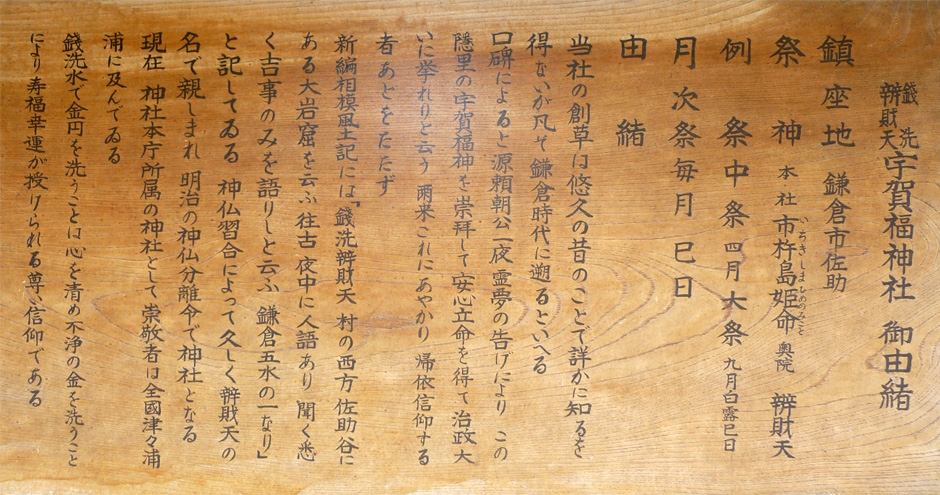 銭洗辨財天 宇賀福神社 御由緒
鎮座地 鎌倉市佐助
祭神 本社 市杵島姫命 奥院 辨財天
いちきしまひめのみこと
例祭 中祭 四月 大祭 九月白露巳日
月次祭 毎月巳日
由緒
当社の創草は悠久の昔のことで詳かに知るを
得ないが凡そ鎌倉時代に遡るといへる
口碑によると源頼朝公一夜霊夢の告げにより この
隠里の宇賀福神を崇拝して安心立命を得て治政大
いに挙れりと云う 爾来これにあやかり 帰依信仰する
者あとをたたず
新編相模風土記には「銭洗辨財天 村の西方佐助谷に
ある大岩窟を云ふ往古夜中に人語あり 聞く悉
く吉事のみを語りしと云ふ 鎌倉五水の一なり」
と記してゐる 神仏習合によって久しく辨財天の
名で親しまれ 明治の神仏分離令で神社となる
現在 神社本庁所属の神社として崇敬者は全國津々浦
浦に及んでゐる
銭洗水で金円を洗うことは心を清め不浄の金を洗うこと
により寿福幸運が授けられる尊い信仰である